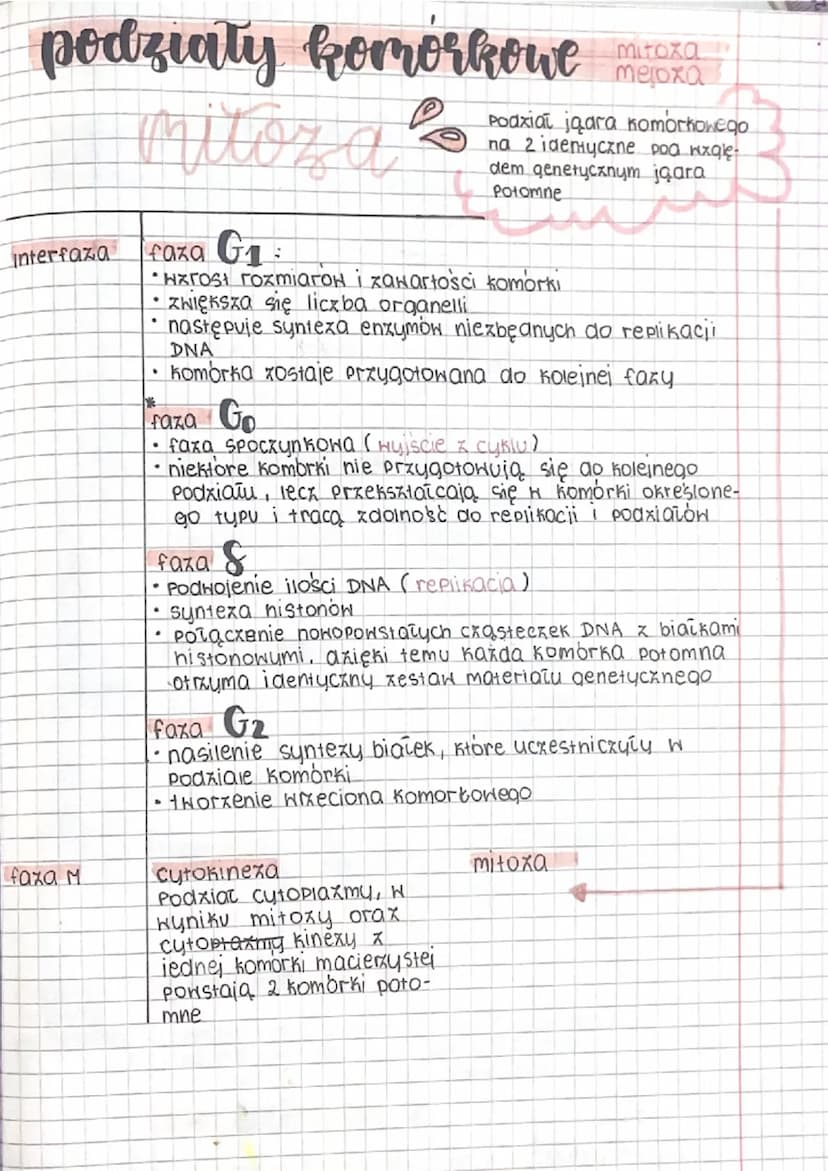 podziały komórkowe
mitoza
mejoza
mitoza
Podział jądra komórkowego
na 2 identyczne pod wzglę-
dem genetycznym jądra
Potomne
interfaza
faza G1:
• wzrost rozmiarów i zawartości komórki
• zwiększa się liczba organelli
• następuje synteza enzymów niezbędnych do replikacji
DNA
• komórka zostaje przygotowana do kolejnej fazy
*
faza G0
• faza spoczynkowa (wyjście z cyklu)
• niektóre komórki nie przygotowują się do kolejnego
podziału, lecz przekształcają się w komórki określone-
go typu i tracą zdolność do replikacji i podziałów
faza S
• Podwojenie ilości DNA (replikacja)
• synteza histonów
• połączenie nowopowstałych cząsteczek DNA z białkami
histonowymi, dzięki temu każda komórka potomna
otrzyma identyczny zestaw materiału genetycznego
faza G2
• nasilenie syntezy białek, które uczestniczyły w
podziale komórki
• tworzenie wrzeciona komortowego
faza M
cytokineza
mitoza
Podział cytoplazmy, w
wyniku mitozy oraz
cytoplazmy kinezy z
jednej komórki macierzystej
powstają 2 komórki poto-
mne